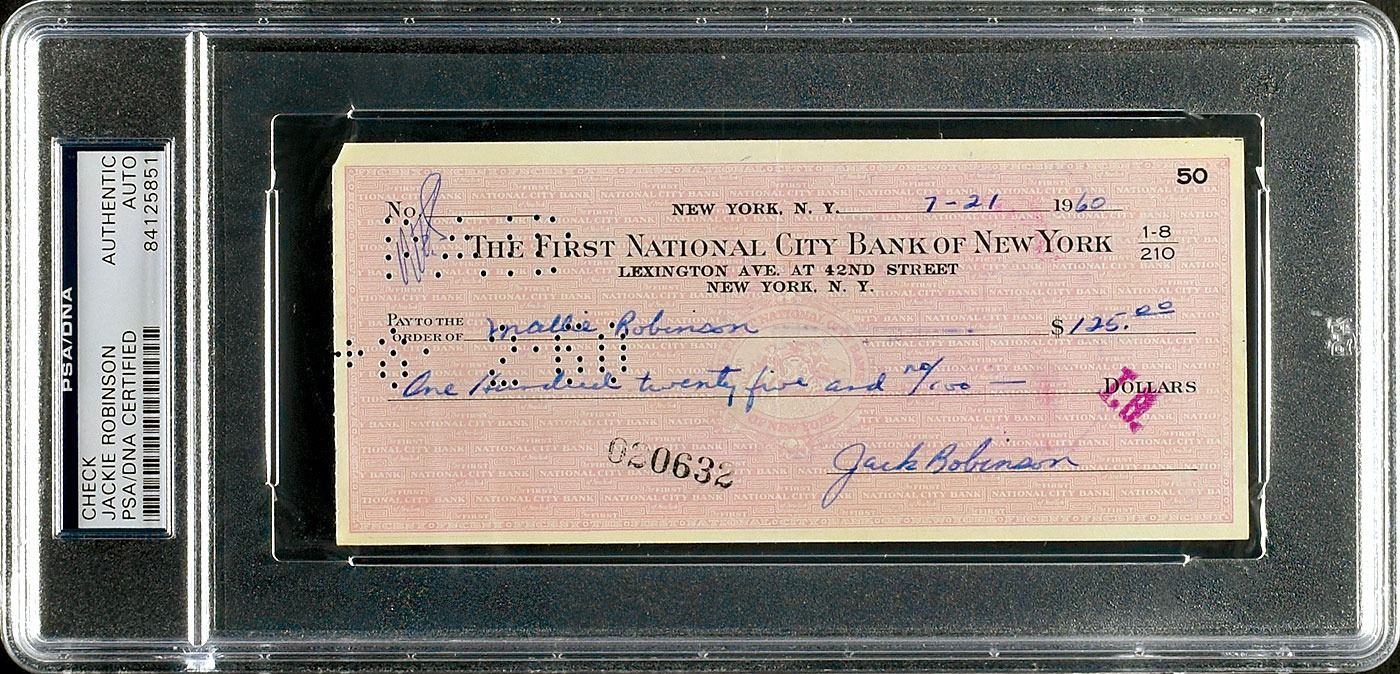 PSA/DNA
CHECK
JACKIE ROBINSON
PSA/DNA CERTIFIED
AUTHENTIC
AUTO
84125851
50
No
NEW YORK, N. Y. 7-21 1960
THE FIRST NATIONAL CITY BANK OF NEW YORK 1-8
210
LEXINGTON AVE. AT 42ND STREET
NEW YORK, N. Y.
PAY TO THE
ORDER OF Mallie Robinson $125.00
One Hundred twenty five and no/100 — DOLLARS
020632
Jack Robinson